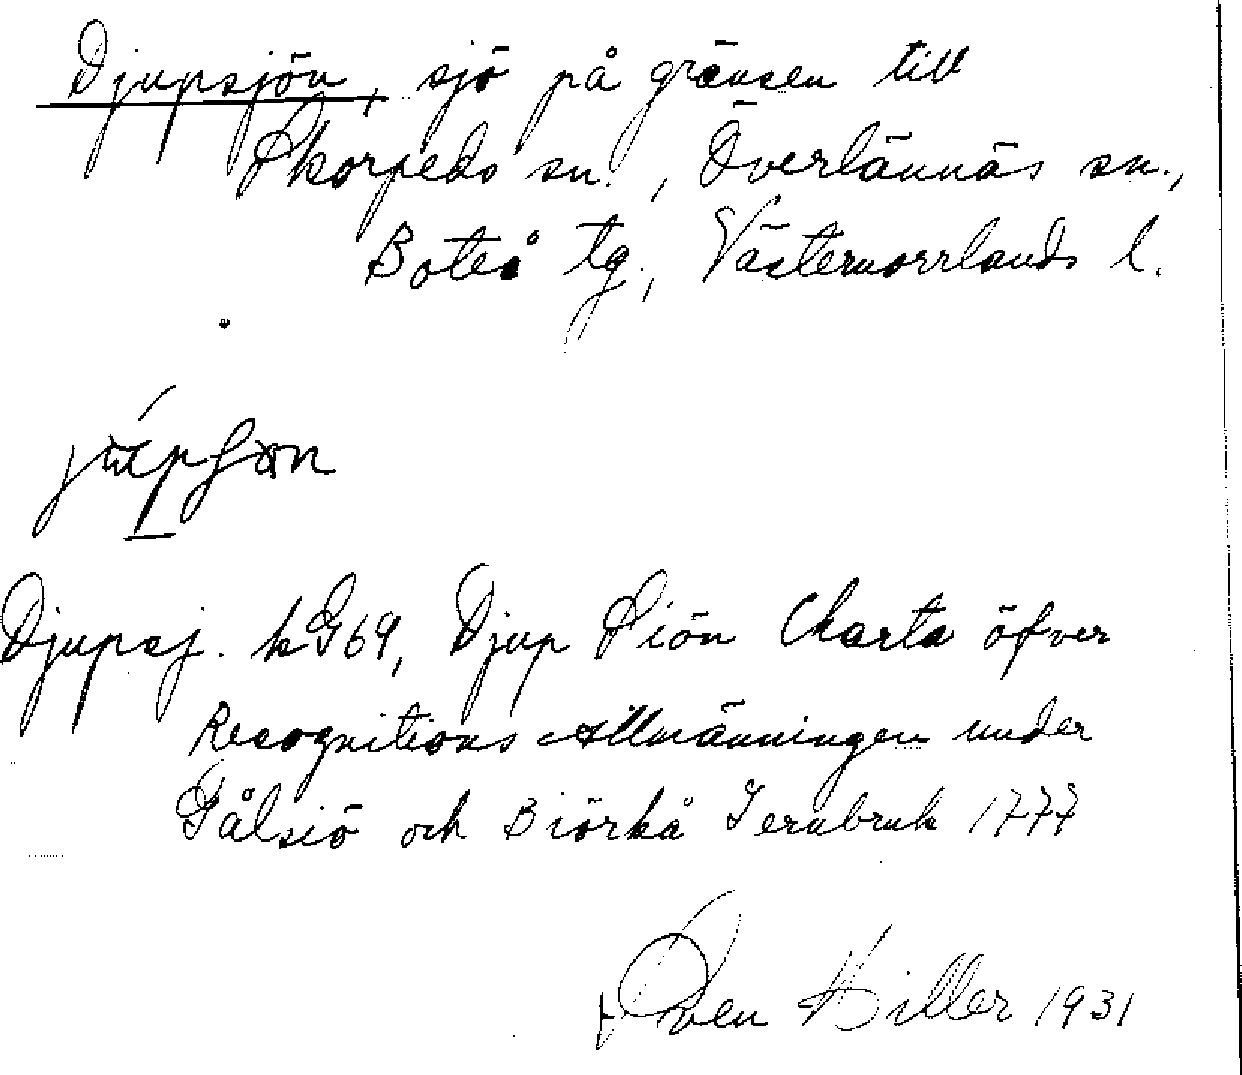 Djupsjön, sjö på gränsen till
Skorpeds sn., Överlännäs sn.,
Boteå tg., Västernorrlands l.
Djupsj. kG69, Djup Siön Charta öfver
Recognitions Allmänningen under
Gålsiö och Biörkå Jernbruk 1777
Sven Hiller 1931